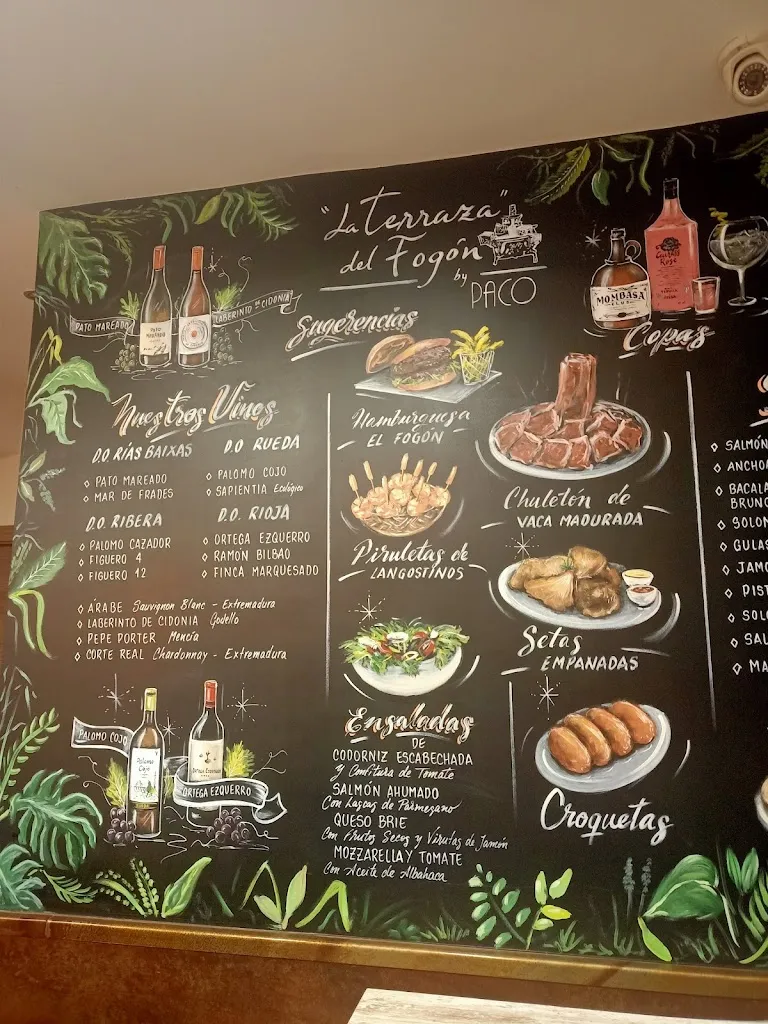 "La Terraza"
del Fogón
by PACO
PATO MAREADO
LABERINTO DE CIDONIA
Nuestros Vinos
D.O RÍAS BAIXAS
◊ PATO MAREADO
◊ MAR DE FRADES
D.O RUEDA
◊ PALOMO COJO
◊ SAPIENTIA Ecológico
D.O. RIBERA
◊ PALOMO CAZADOR
◊ FIGUERO 4
◊ FIGUERO 12
D.O. RIOJA
◊ ORTEGA EZQUERRO
◊ RAMÓN BILBAO
◊ FINCA MARQUESADO
◊ ÁRABE Sauvignon Blanc - Extremadura
◊ LABERINTO DE CIDONIA Godello
◊ PEPE PORTER Mencía
◊ CORTE REAL Chardonnay - Extremadura
PALOMO COJO
ORTEGA EZQUERRO
Sugerencias
Hamburguesa
EL FOGÓN
Piruletas de
LANGOSTINOS
Ensaladas
DE
CODORNIZ ESCABECHADA
y Confitura de Tomate
SALMÓN AHUMADO
Con Lascas de Parmesano
QUESO BRIE
Con Frutos Secos y Virutas de Jamón
MOZZARELLA Y TOMATE
Con Aceite de Albahaca
Chuletón de
VACA MADURADA
Setas
EMPANADAS
Croquetas
MOMBASA
CLUB
Copas
◊ SALMÓN
◊ ANCHO
◊ BACALA
BRUNO
◊ SOLOM
◊ GULAS
◊ JAMO
◊ PIST
◊ SOLO
◊ SAL
◊ MA